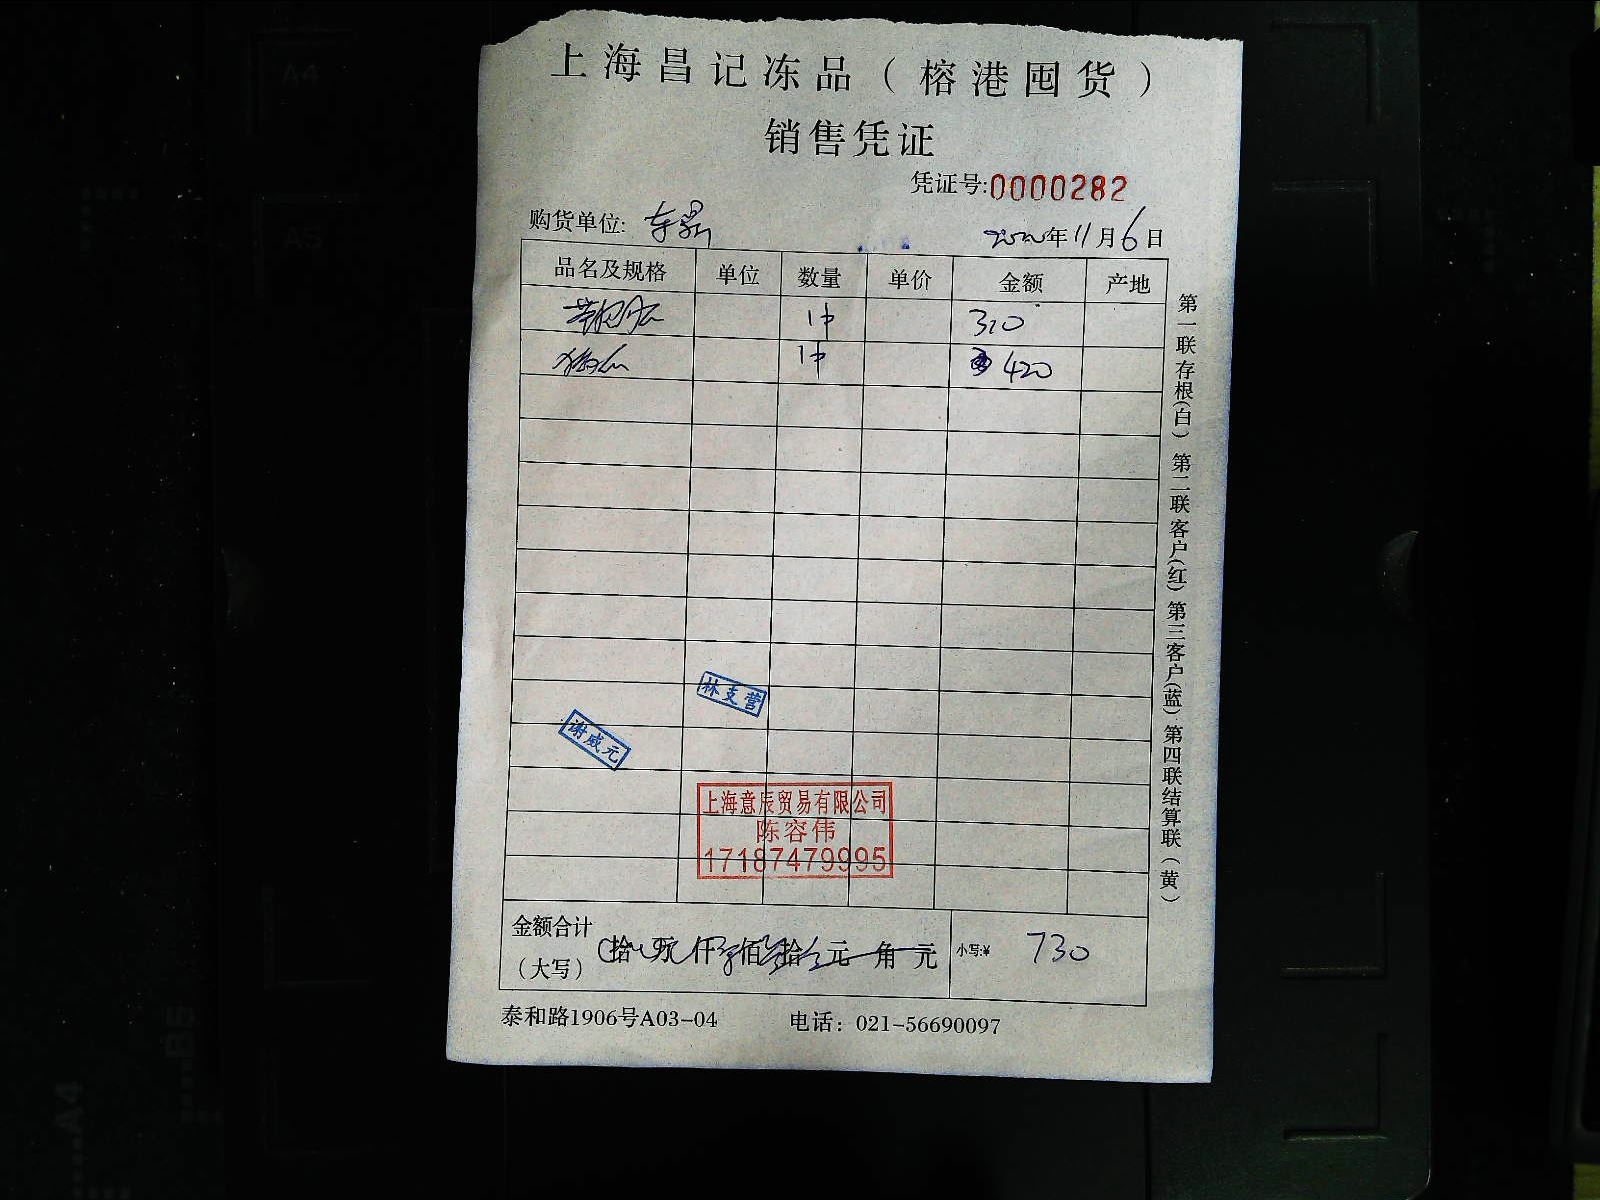 上海昌记冻品（榕港囤货）
销售凭证
凭证号:0000282
购货单位:
2020年11月6日
品名及规格 单位 数量 单价 金额 产地
1件 310
1件 420
第一联存根(白) 第二联客户(红) 第三客户(蓝) 第四联结算联(黄)
林支营
谢威元
上海意辰贸易有限公司
陈容伟
17187479995
金额合计
(大写) 拾 万 仟 佰 拾 元 角 元 小写:¥ 730
泰和路1906号A03-04 电话：021-56690097
A4
A5
B5
A4